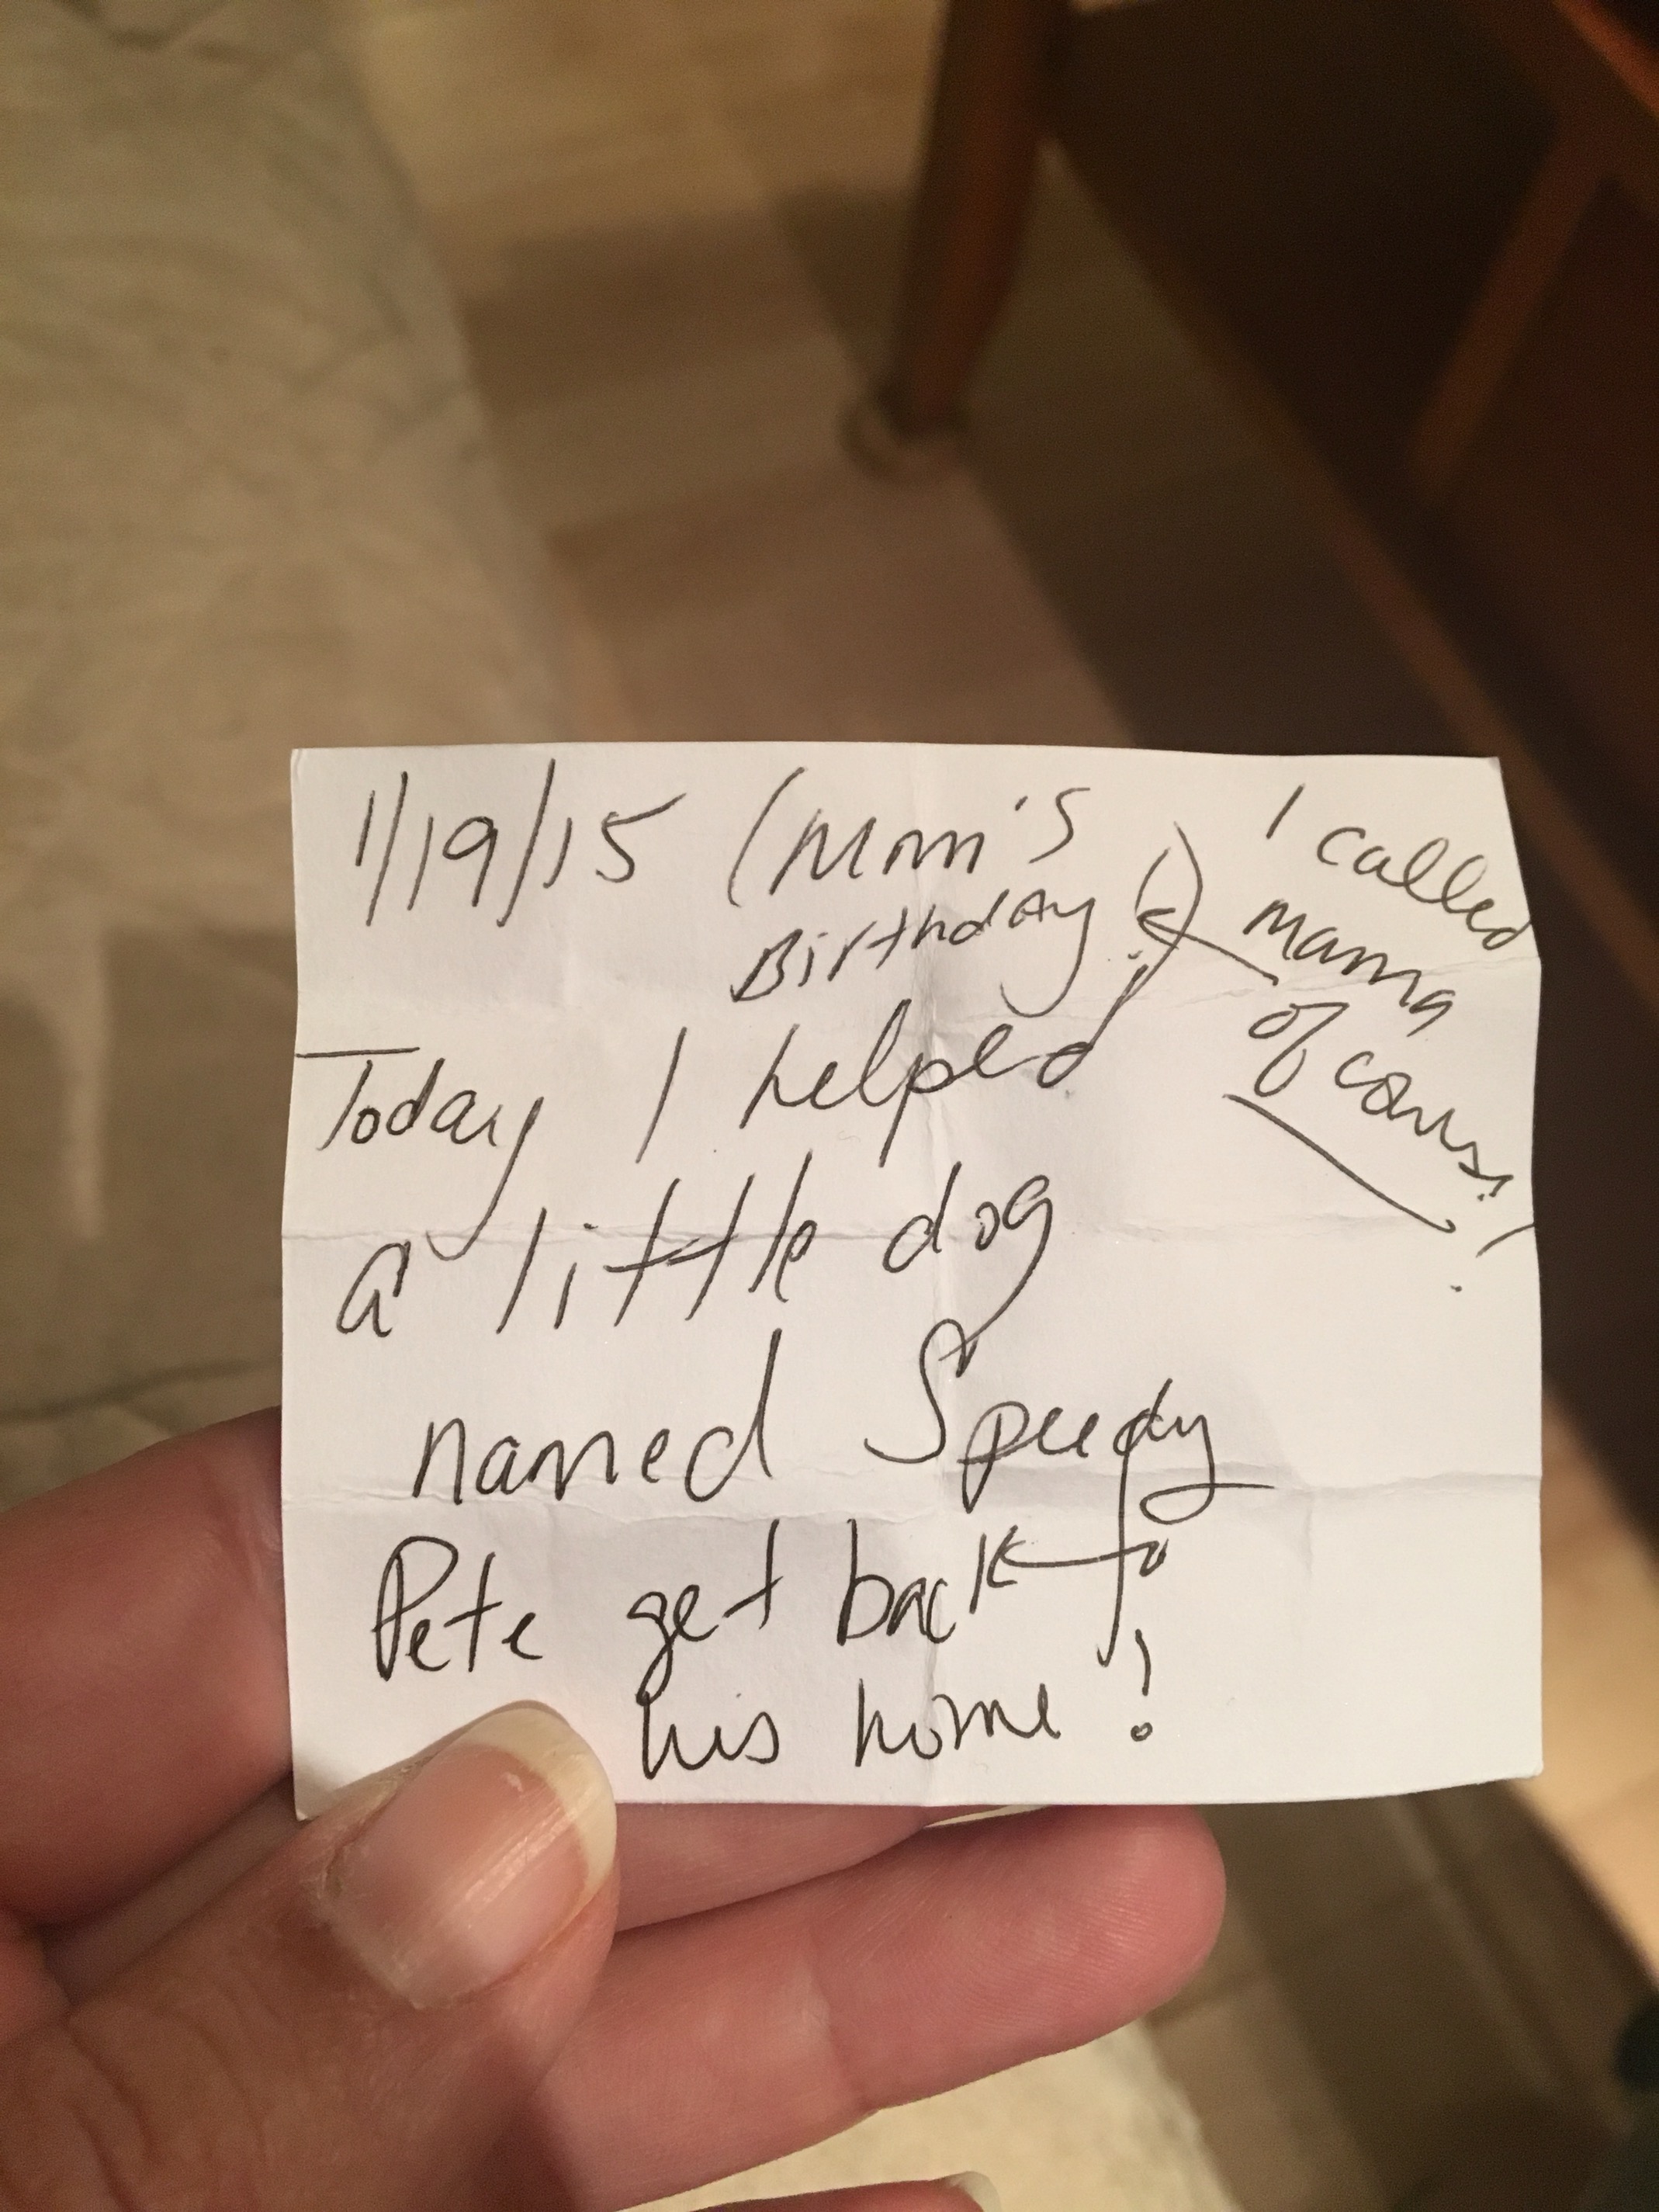 1/19/15 (Mom's
Birthday!)
I called
mama
of course!
Today I helped
a little dog
named Speedy
Pete get back to
his home!